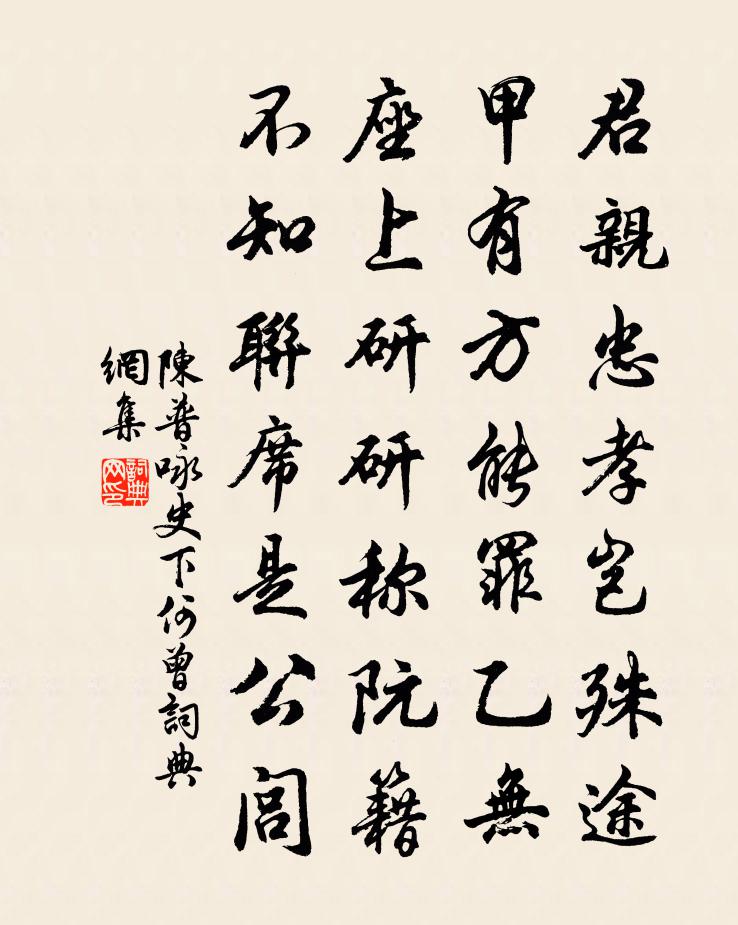 君親忠孝岂殊途
甲有方能罪乙無
座上研研称阮籍
不知聯席是公闾
陳普咏史下何曾詞典
網集
詞典
网印